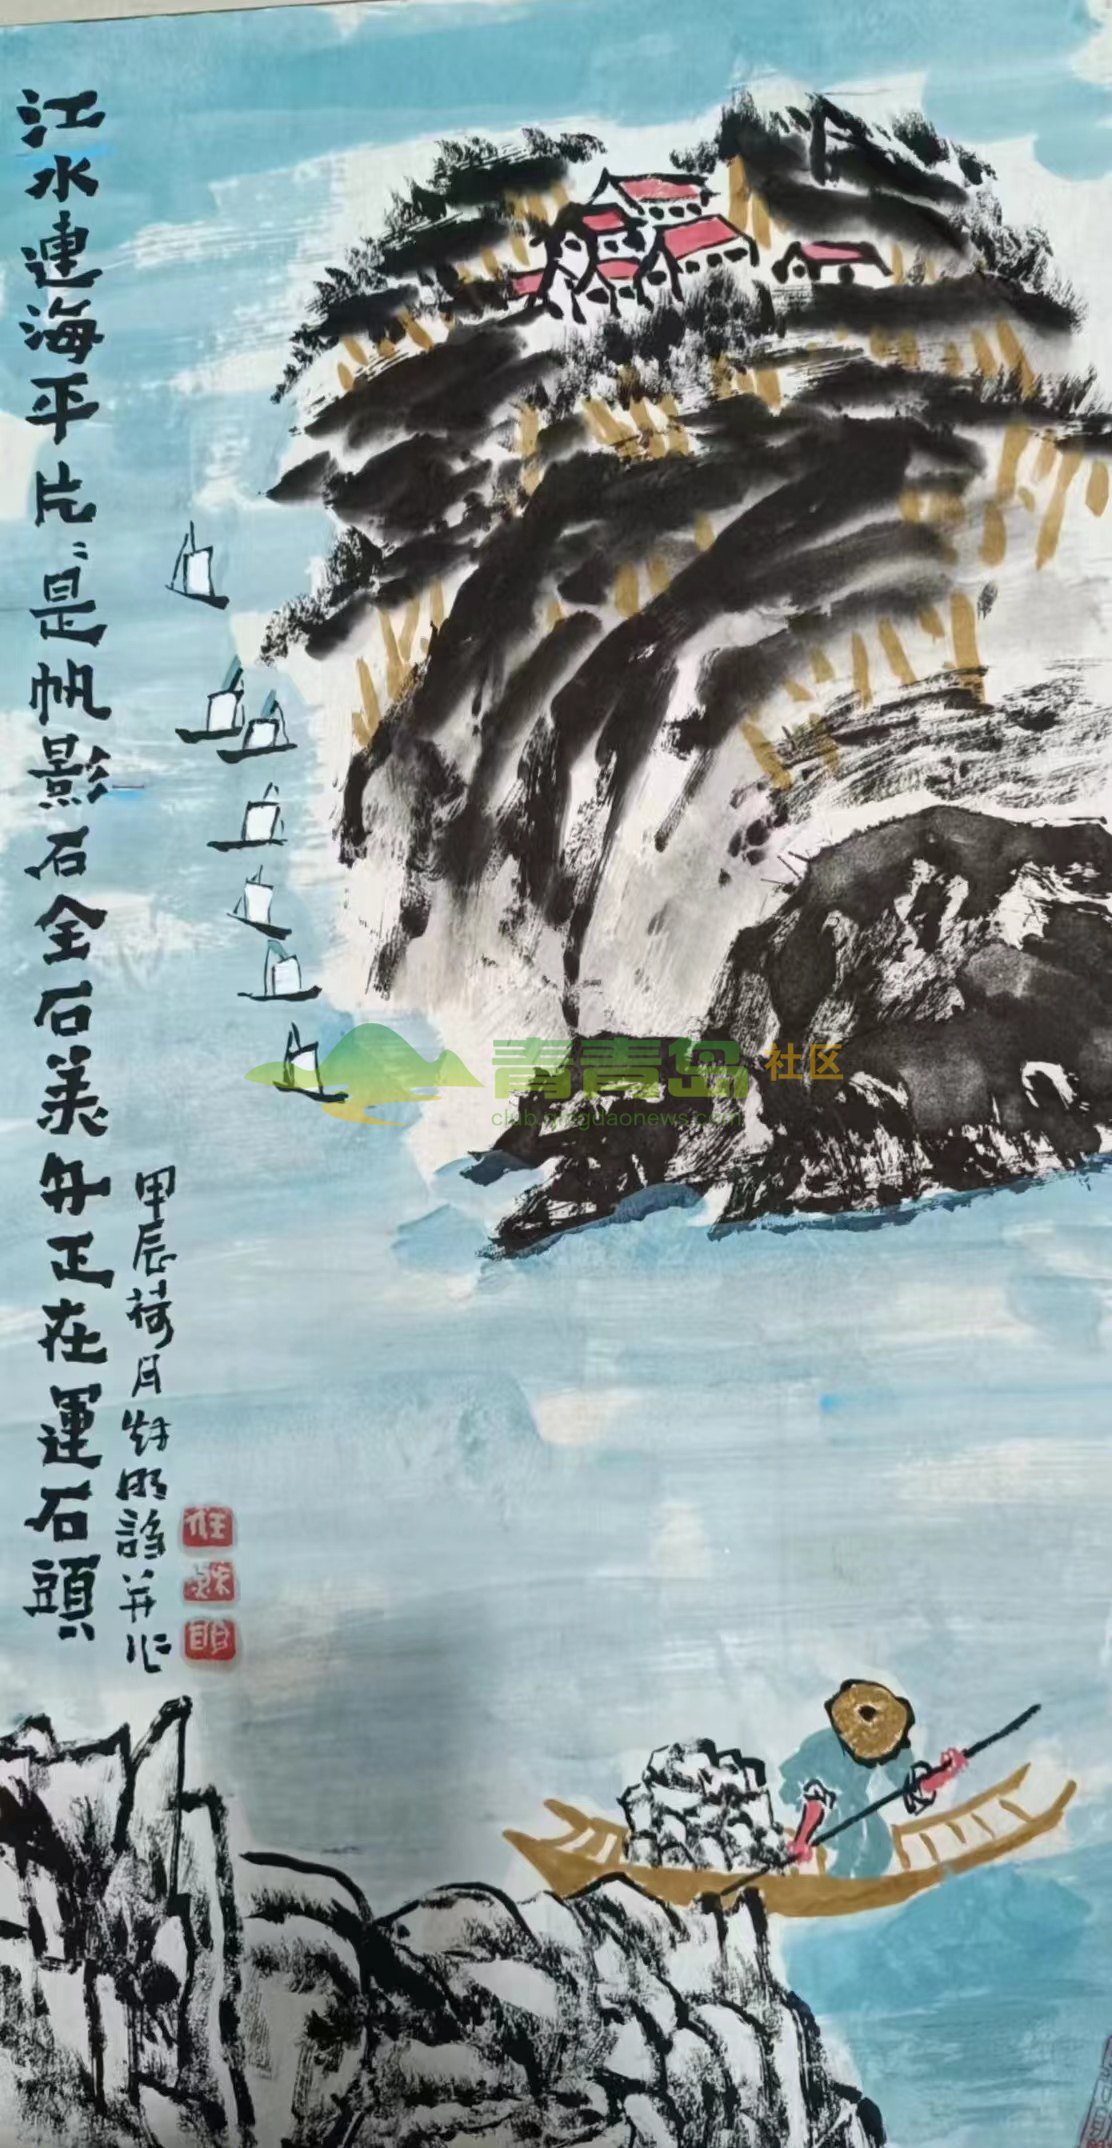 江水連海平片〻是帆影石全石美舟正在運石頭
甲辰荷月 明詩并作
青青岛 社区
club.qingdaonews.com